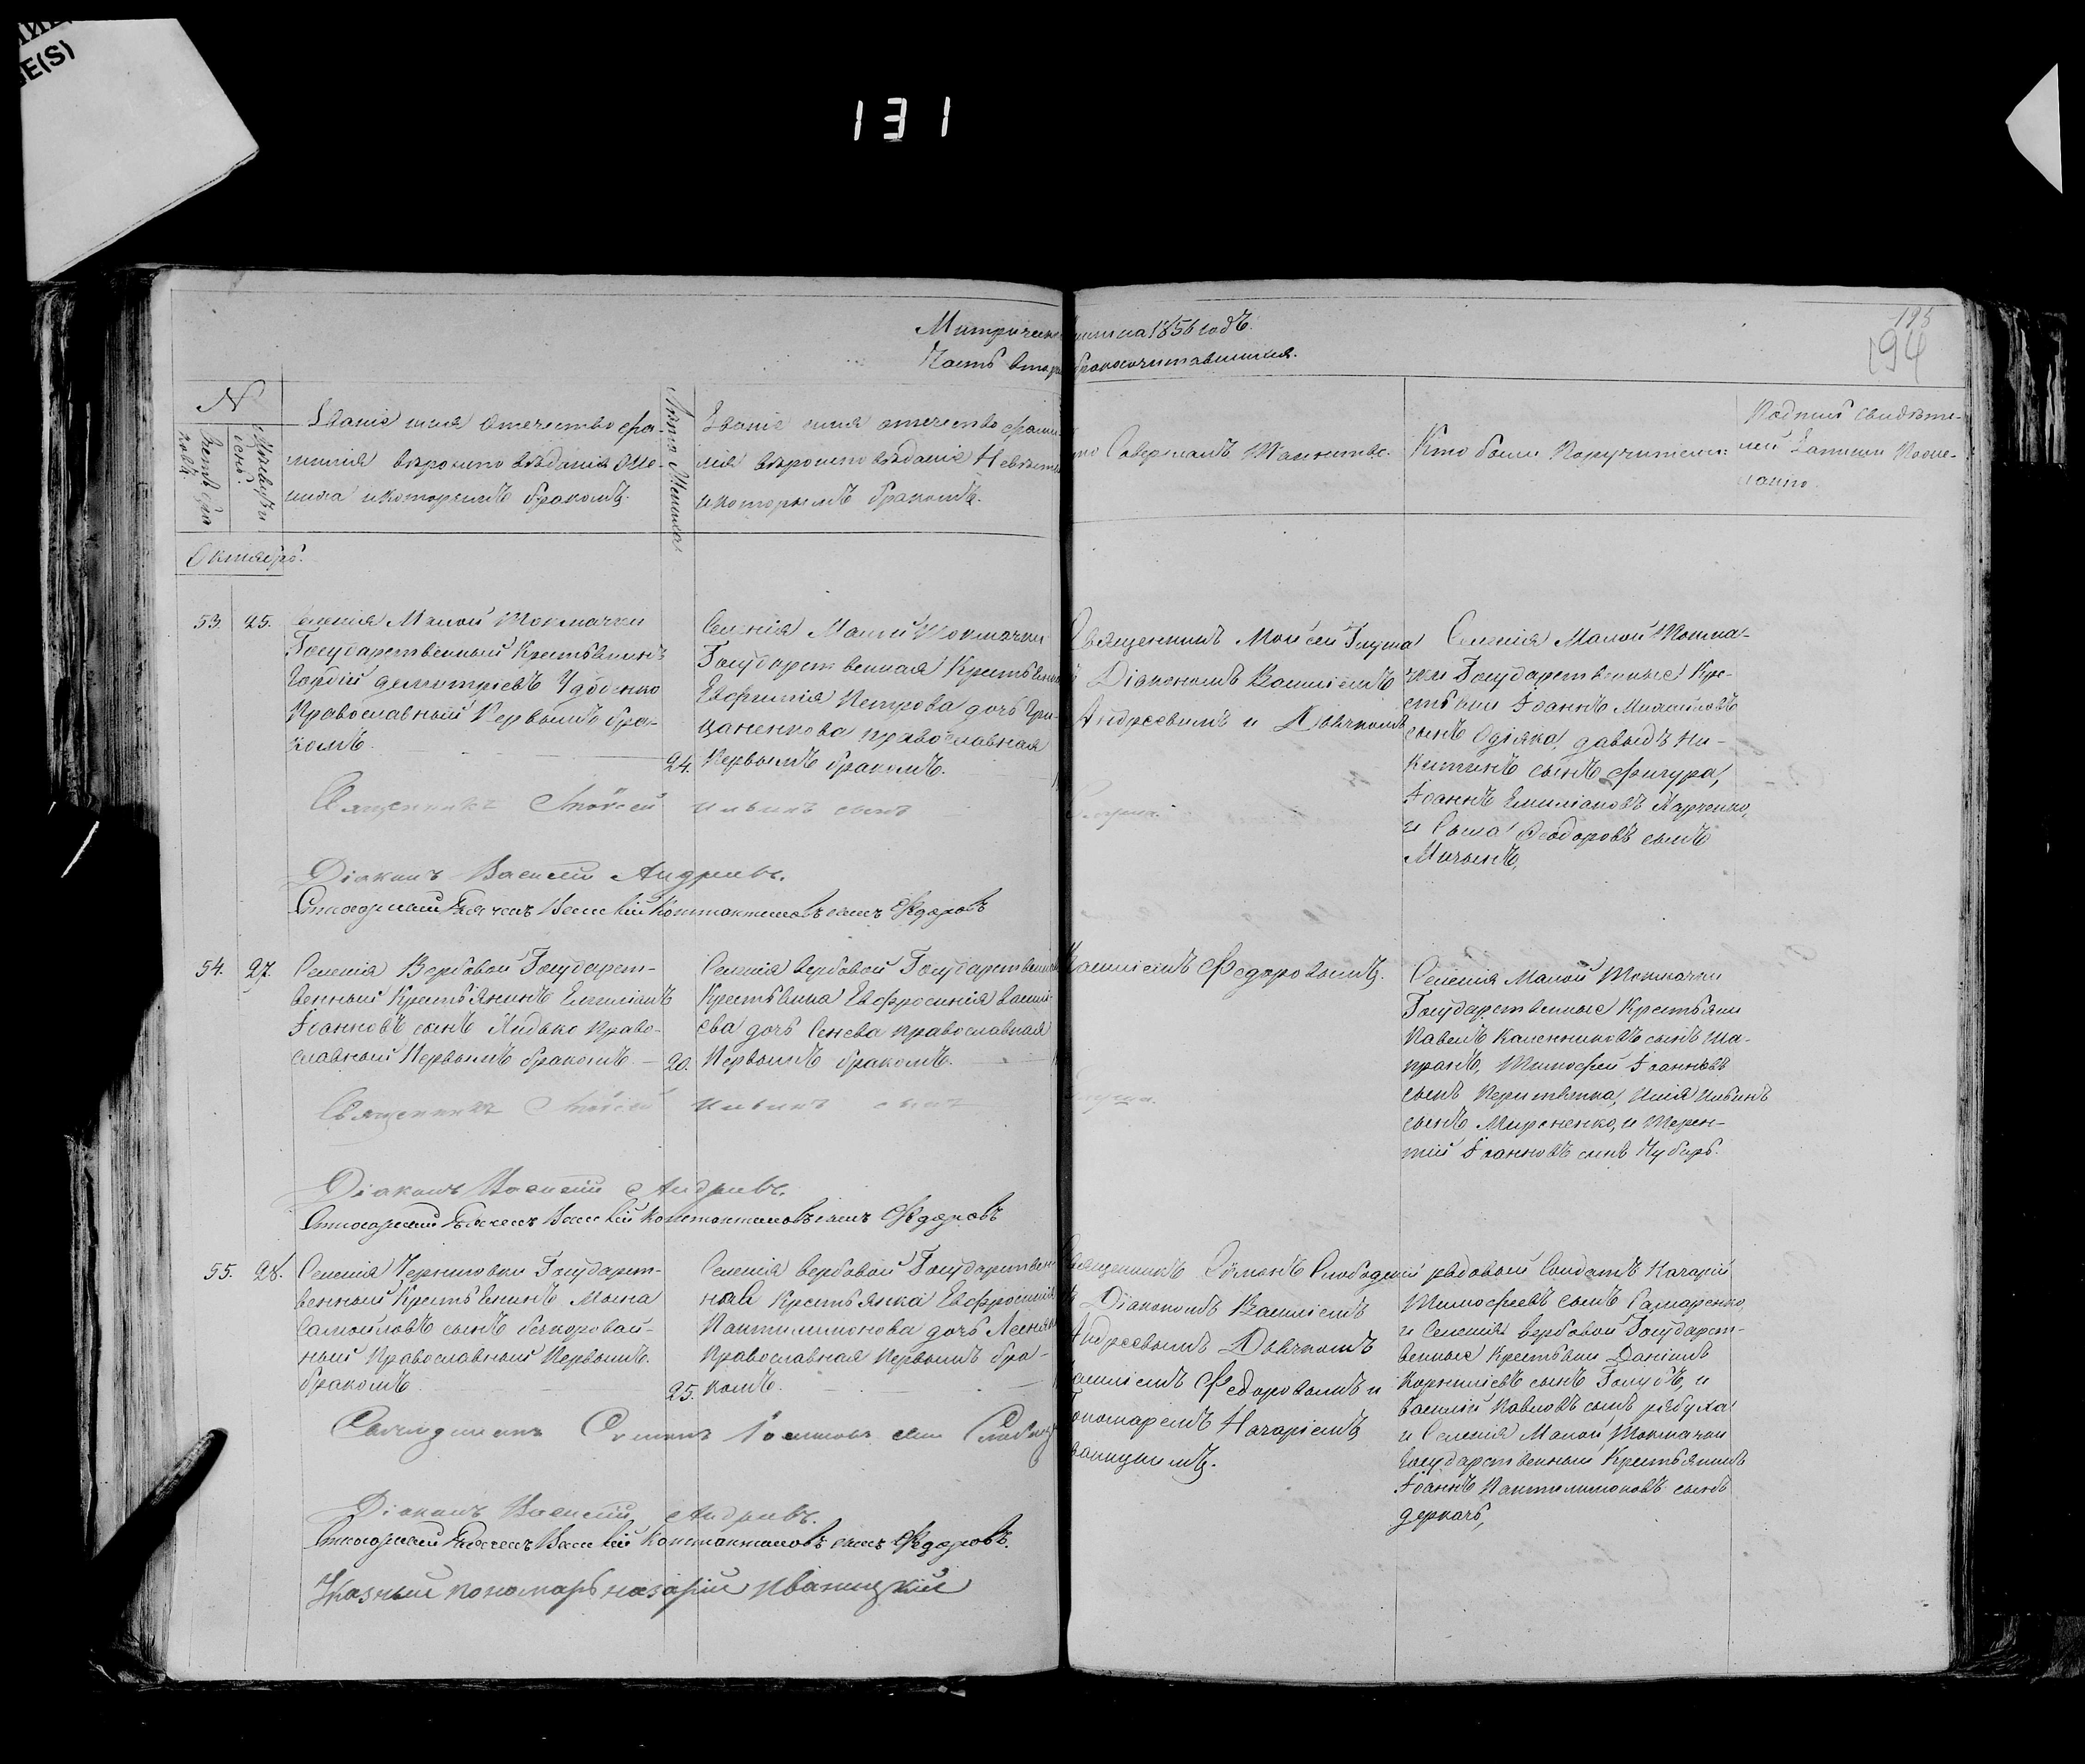 E(S)
131
195
194
Метрической книги на 1856 годъ.
Часть вторая бракосочитавшихся.
N
Счетъ браковъ.
Мѣсяцъ и день.
Званіе имя отечество фа-
милія вѣроисповѣданіе Же-
ниха и которымъ бракомъ.
Лѣта Жениха
Званіе имя отечество фами-
лія вѣроисповѣданіе Невѣсты
и которымъ бракомъ.
Кто Совершалъ Таинство.
Кто были Поручители:
Подпись свидѣте-
лей Записи По же-
ланію.
Октябрь.
53.
25.
Селенія Малой Токмачки
Государственный Крестьянинъ
Гордій Демитріевъ Удовенко
Православный Первымъ бра-
комъ.
24.
Селенія Малой Токмачки
Государственная Крестьянка
Евфимія Петрова дочь Гри-
цаненкова православная
Первымъ бракомъ.
Священникъ Моисей Глуша
Діакономъ Василіемъ
Андреевымъ и Дьячкомъ
Селенія Малой Токма-
чки Государственные Кре-
стьяни Іоаннъ
сынъ давыдъ Ни-
китинъ сынъ Фигура,
Іоаннъ Емиліановъ Марченко,
и Сыма Феодоровъ сынъ
Священникъ Моисей Ильинъ сынъ Глуша.
Діаконъ Василій Андріевъ.
Стихарный Дьячекъ Василій Константиновъ сынъ Федоровъ
54.
27.
Селенія Вербовой Государст-
венный Крестьянинъ Емиліанъ
Іоанновъ сынъ Жидько Право-
славный Первымъ бракомъ.
20.
Селенія Вербовой Государственная
Крестьянка Евфросинія Васил-
ева дочь Сенева православная
Первымъ бракомъ.
Василіемъ Федоровымъ.
Селенія Малой Токмачки
Государственные Крестьяни
Павелъ Калениковъ сынъ Ша-
пралъ, Тимофей Іоанновъ
сынъ Илія Ильинъ
сынъ Мироненко, и Терен-
тій Іоанновъ сынъ Чубарь.
Священникъ Моисей Ильинъ сынъ Глуша.
Діаконъ Василій Андріевъ.
Стихарный Дьячекъ Василій Константиновъ сынъ Федоровъ
55.
28.
Селенія Черниговки Государст-
венный Крестьянинъ Мына
Самойловъ сынъ Безкоровай-
ный Православный Первымъ.
бракомъ.
25.
Селенія Вербовой Государствен-
ная Крестьянка Евфросинія
Пантилимонова дочь
Православная Первымъ бра-
комъ.
Священникъ Сѵмеонъ Слободскій
и Діакономъ Василіемъ
Андреевымъ Дьячкомъ
Василіемъ Федоровымъ и
Пономаремъ Назаріемъ
Иваницкимъ.
рядовой Солдатъ Назарій
Тимофеевъ сынъ Гамаренко,
и Селенія Вербовой Государст-
венные Крестьяни Даніилъ
Корниліевъ сынъ Голубъ, и
Василій Павловъ сынъ рябуха
и Селенія Малой Токмачки
Государственный Крестьянинъ
Іоаннъ Пантилимоновъ сынъ
деркачь,
Священникъ Симеонъ Іоанновъ сынъ Слободск
Діаконъ Василій Андріевъ.
Стихарный Дьячекъ Василій Константиновъ сынъ Федоровъ.
Указный пономарь назарій Иваницкій